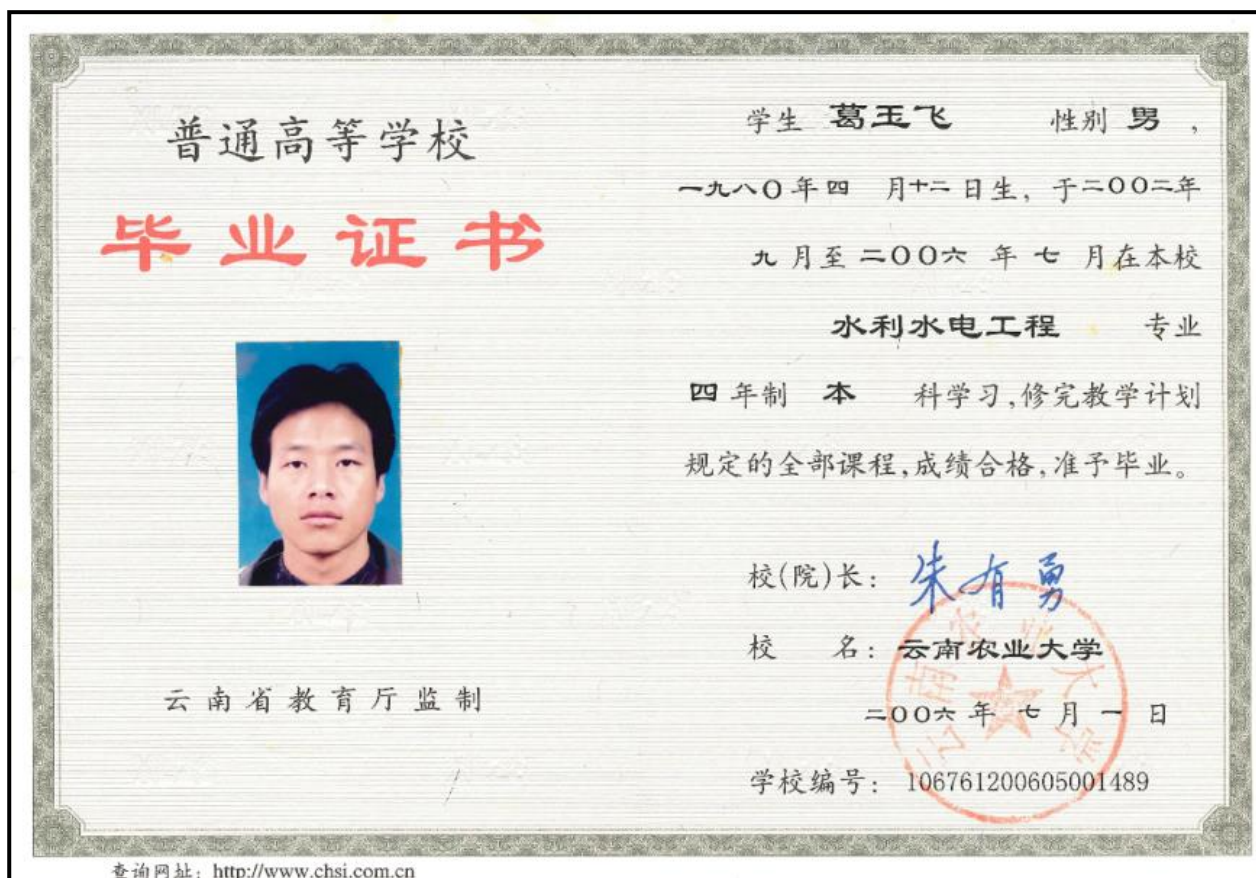 普通高等学校
毕业证书
云南省教育厅监制
学生 葛玉飞 性别 男，
一九八〇年四 月十二日生，于二〇〇二年
九月至二〇〇六 年 七 月在本校
水利水电工程 专业
四年制 本 科学习，修完教学计划
规定的全部课程，成绩合格，准予毕业。
校(院)长：朱有勇
校 名：云南农业大学
云南农业大学
二〇〇六年 七月 一 日
学校编号：106761200605001489
查询网址：http://www.chsi.com.cn